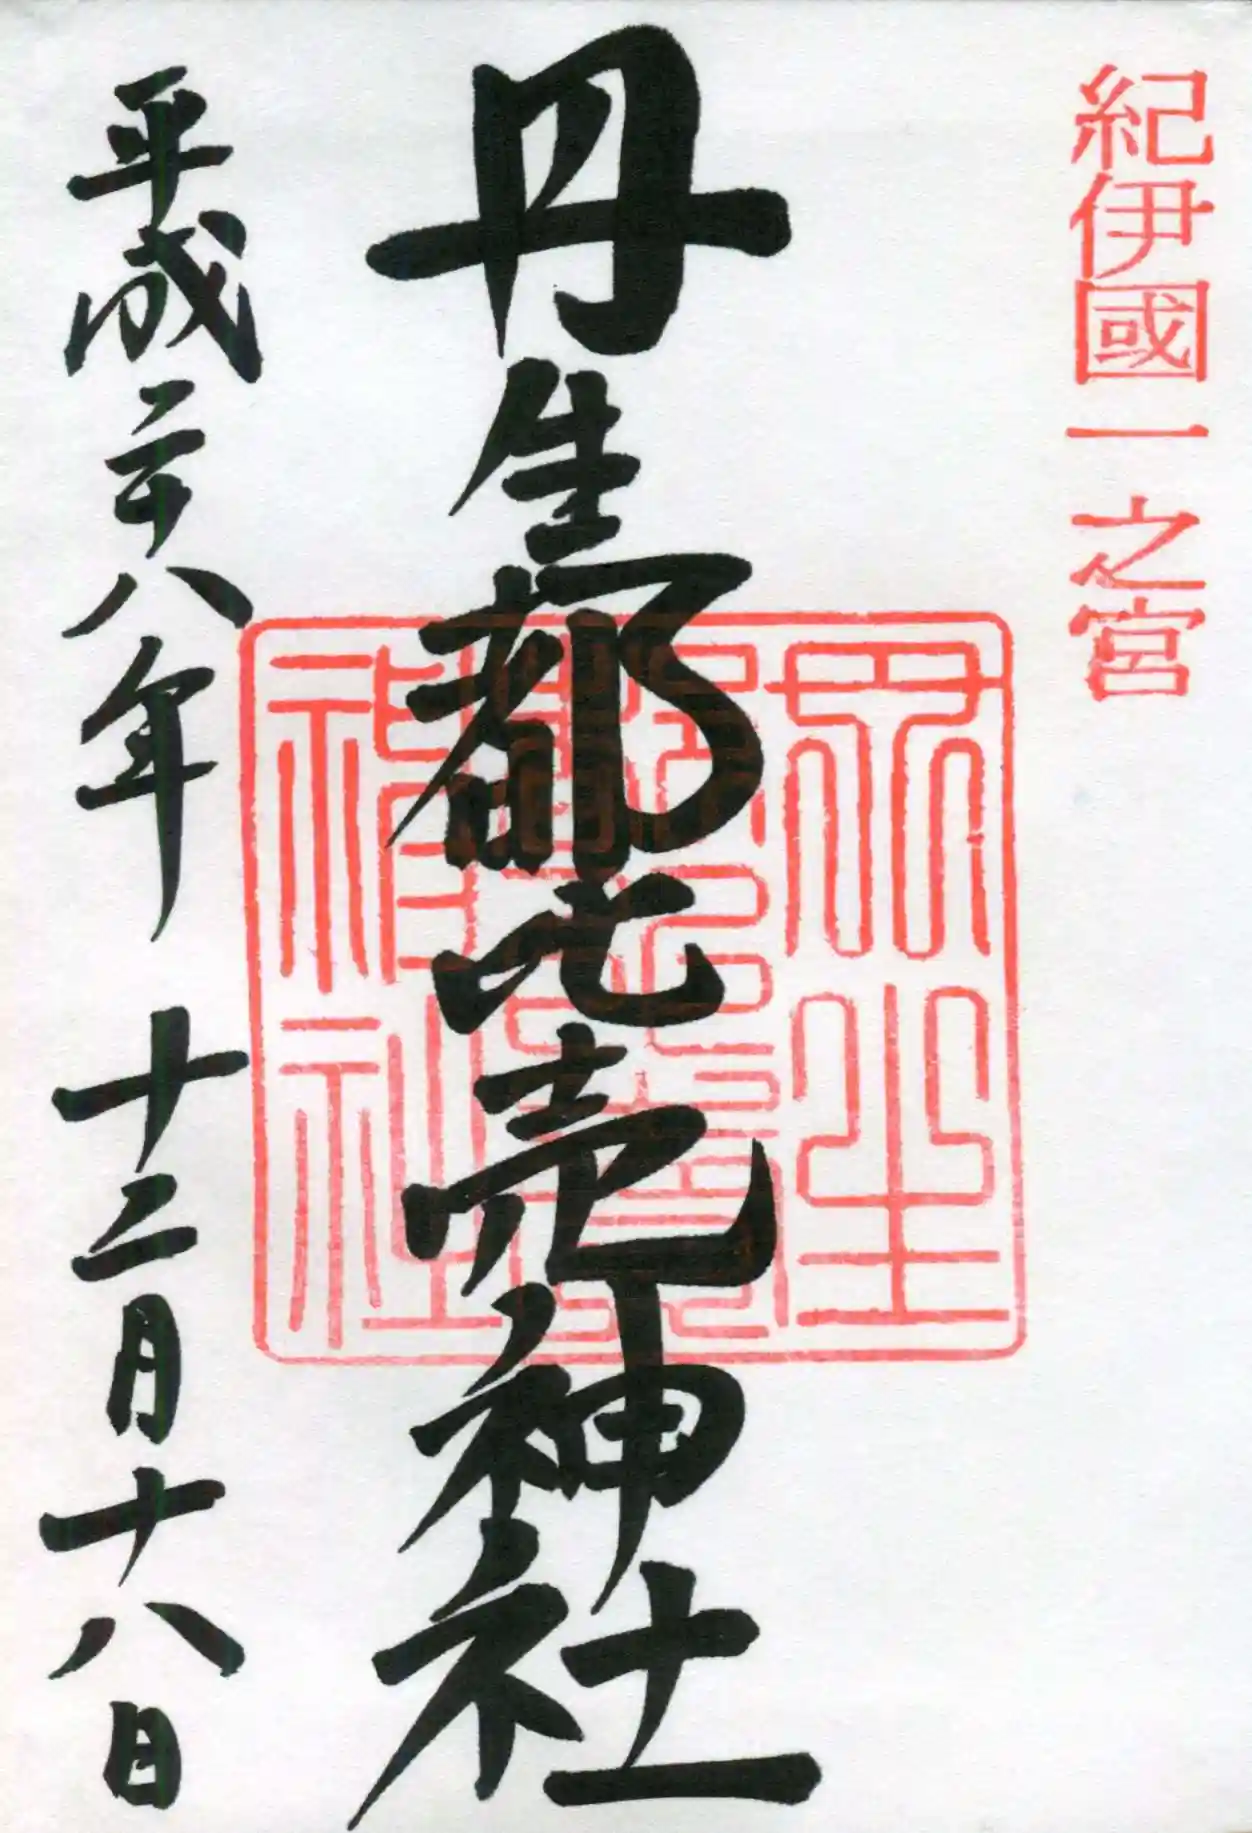 紀伊國一之宮
丹生都比売神社
平成二十八年 十二月十八日
丹生
都比賣
神社